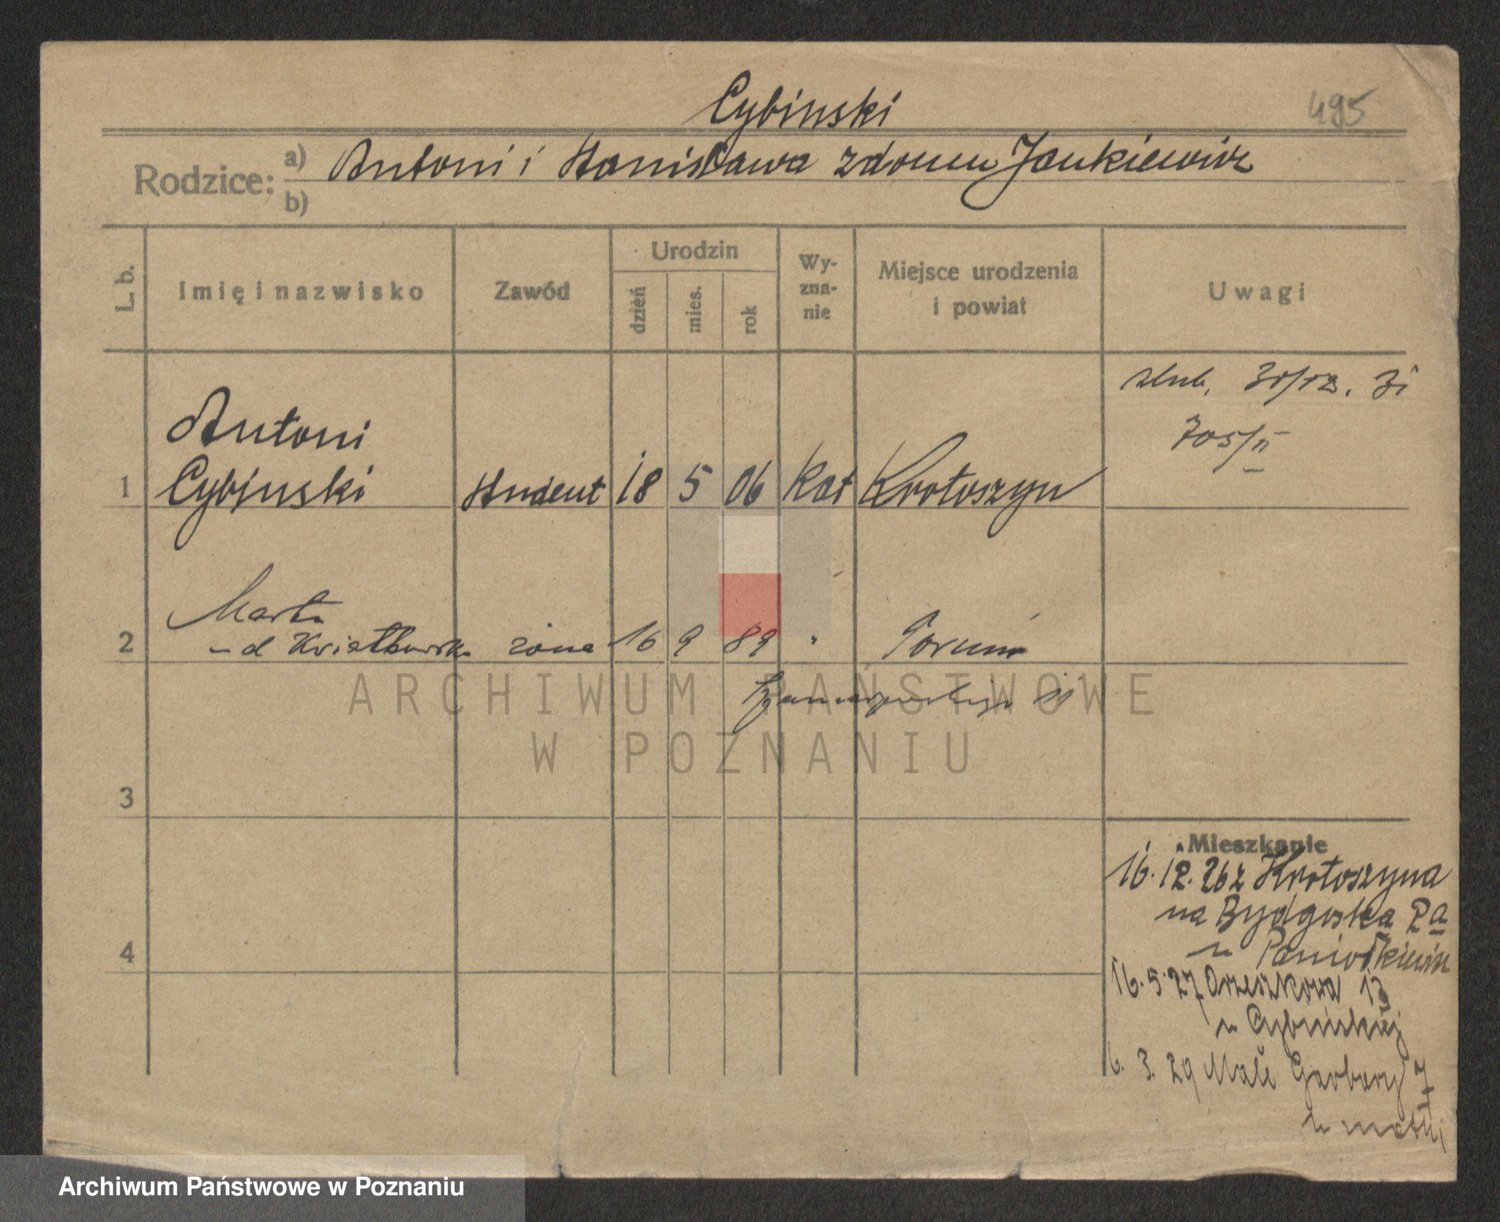 495
Cybinski
Rodzice: a) Antoni i Stanisława z domu Jankiewicz
b)
L. b.
Imię i nazwisko
Zawód
Urodzin
dzień
mies.
rok
Wy-
zna-
nie
Miejsce urodzenia
i powiat
Uwagi
ślub.
705/II
Antoni
1 Cybinski student 18 5 06 Kat Krotoszyn
Marta
2 żona 16 9 89 " Toruń
ARCHIWUM PAŃSTWOWE
W POZNANIU
3
4
Mieszkanie
16.12.26 z Krotoszyna
na Bydgoska 2a
u
16.5.27 Orzeszkowa 13
u Cybińskiej
6. 3. 29 Małe Garbary 7
u matki
Archiwum Państwowe w Poznaniu